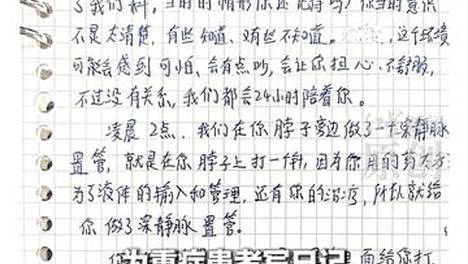 了我们科，当时的情形你还记得吗？你当时意识
不是太清楚，有些知道、有些不知道。这个环境
可能会感到可怕、会有点吵，会让你担心、不舒服，
不过没有关系，我们都会24小时陪着你。
凌晨2点，我们在你脖子旁边做了一个深静脉
置管，就是在你脖子上打一个针，因为你用的药太多
为了液体的输入和管理，还有你的治疗，所以就给
你做了深静脉置管。
原创
为重症患者写日记
面给你打